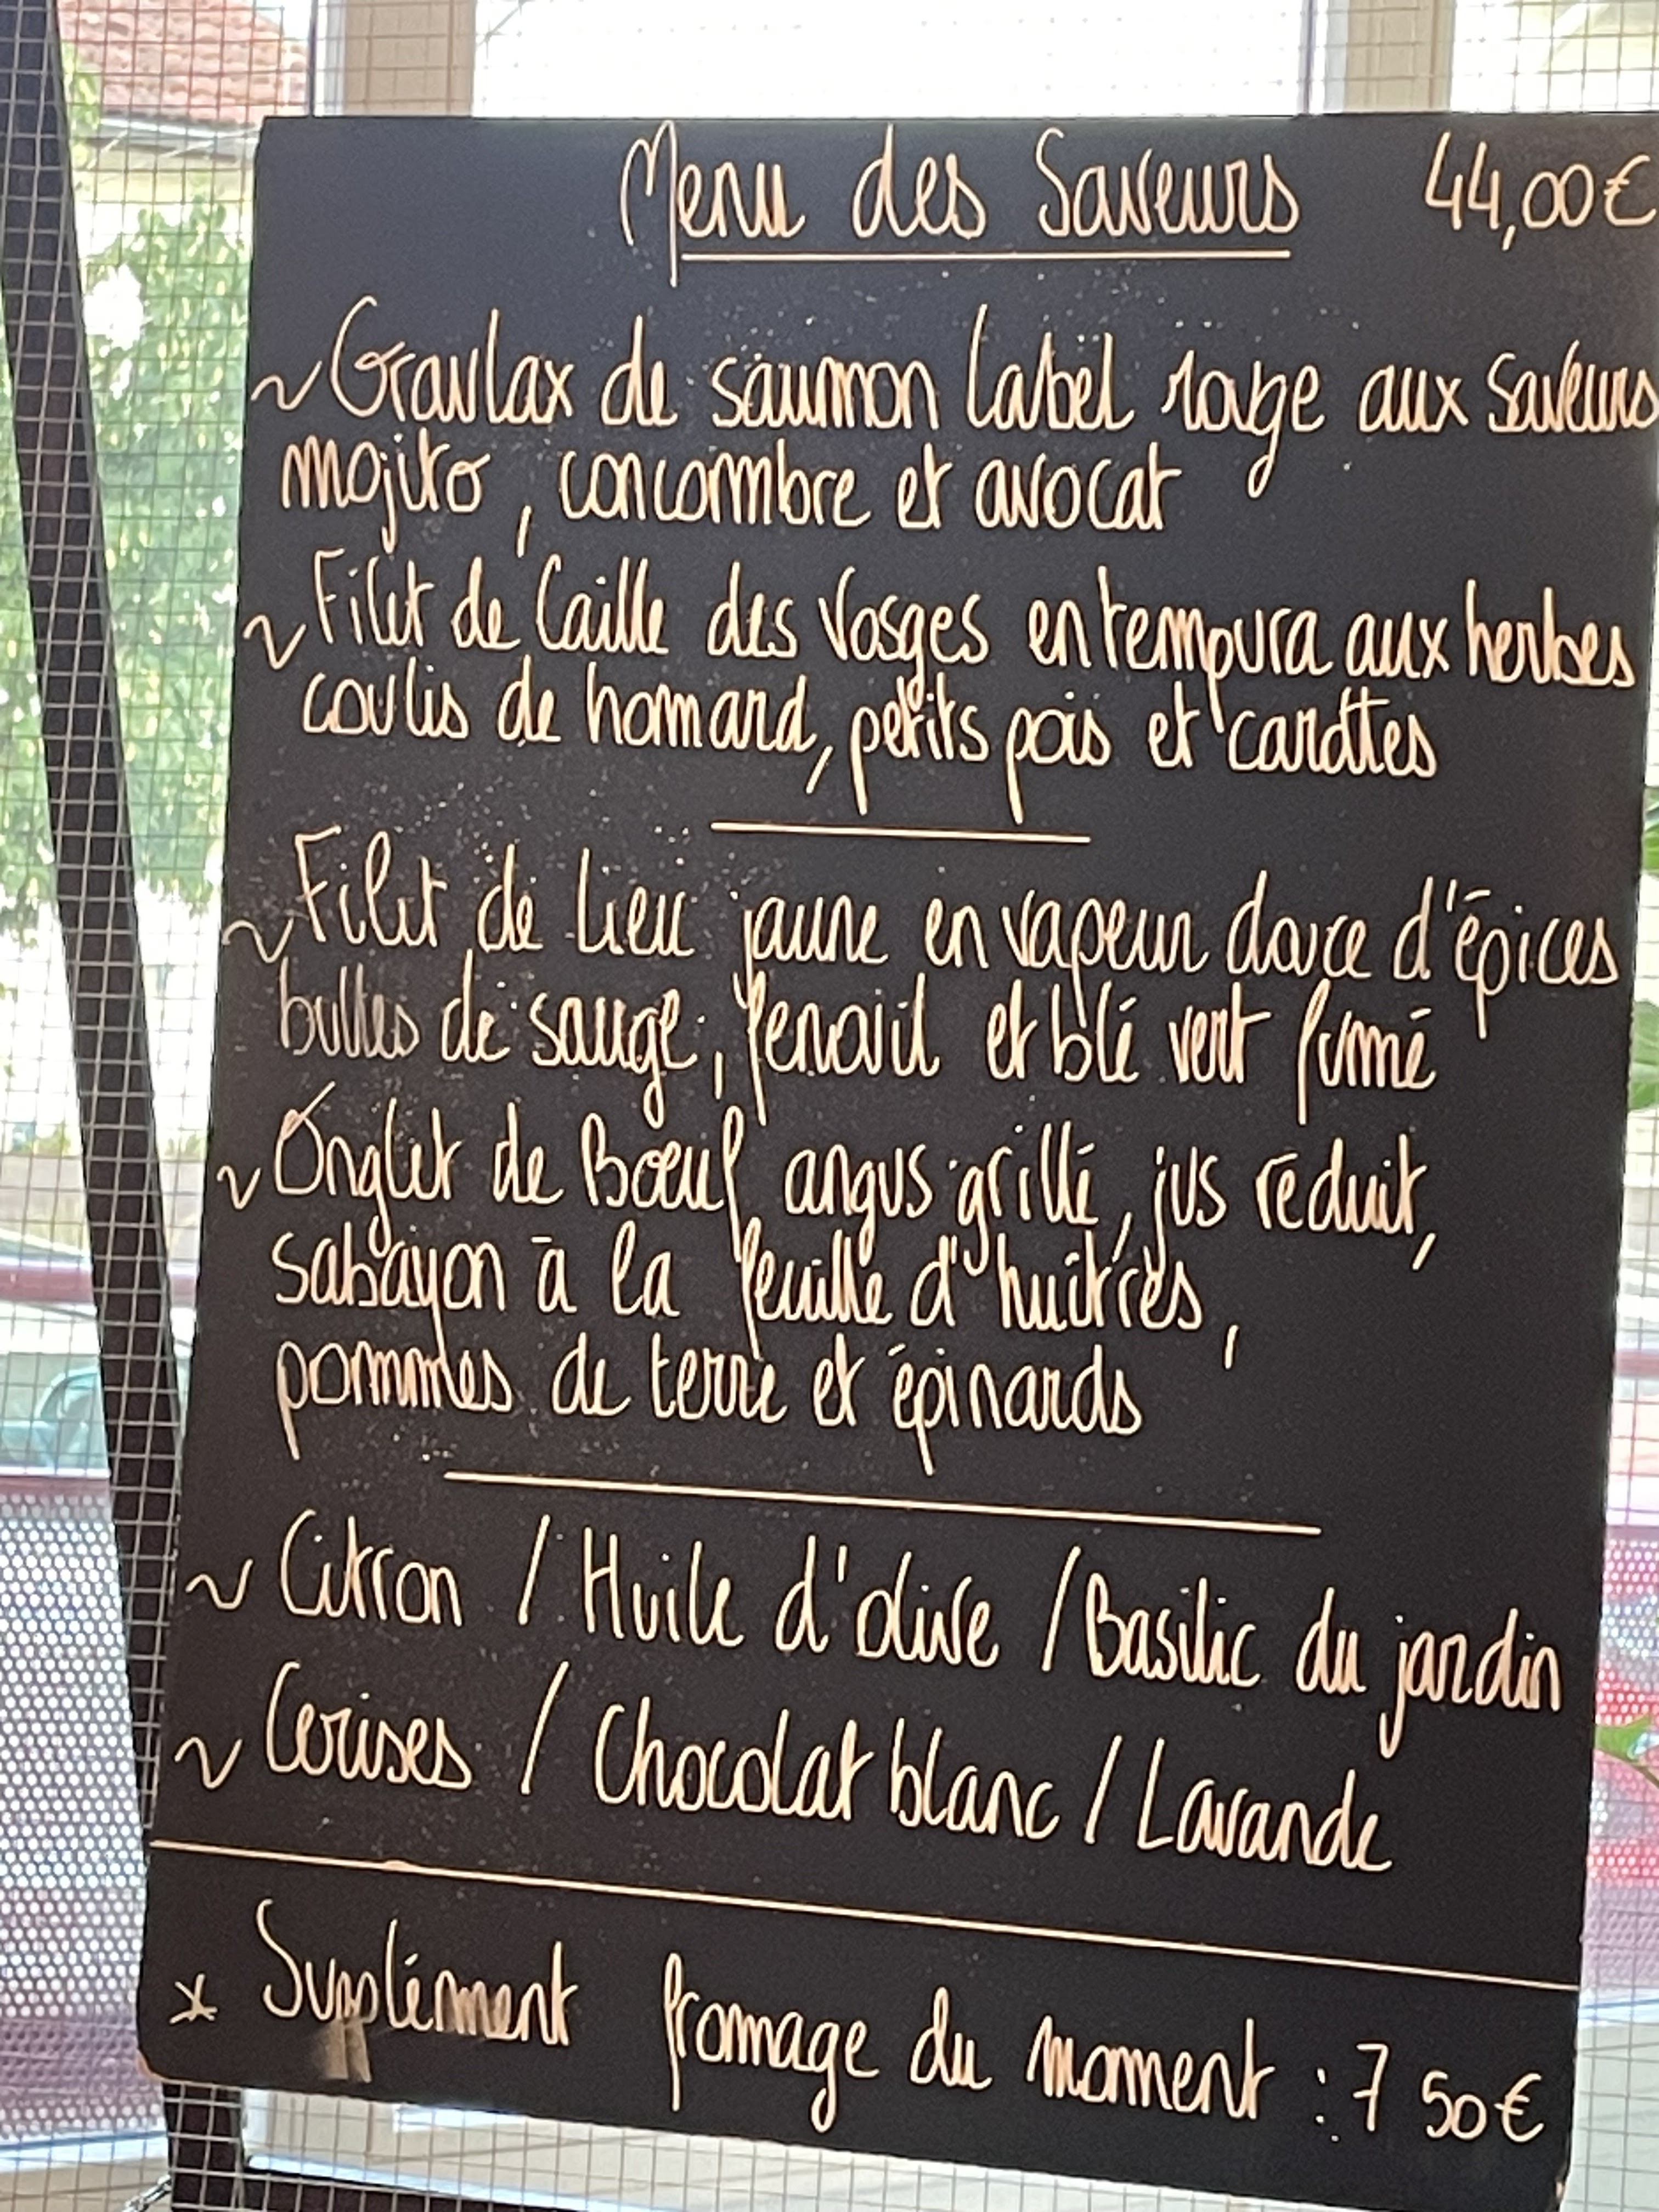 Menu des Saveurs 44,00€
~ Gravlax de saumon Label rouge aux Saveurs
mojito, concombre et avocat
~ Filet de Caille des Vosges en tempura aux herbes
coulis de homard, petits pois et carottes
~ Filet de Lieu jaune en vapeur douce d'épices
bulles de sauge, fenouil et blé vert fumé
~ Onglet de Bœuf angus grillé, jus réduit,
sabayon à la feuille d'huîtres,
pommes de terre et épinards
~ Citron / Huile d'olive / Basilic du jardin
~ Cerises / Chocolat blanc / Lavande
* Supplément fromage du moment : 7 50€